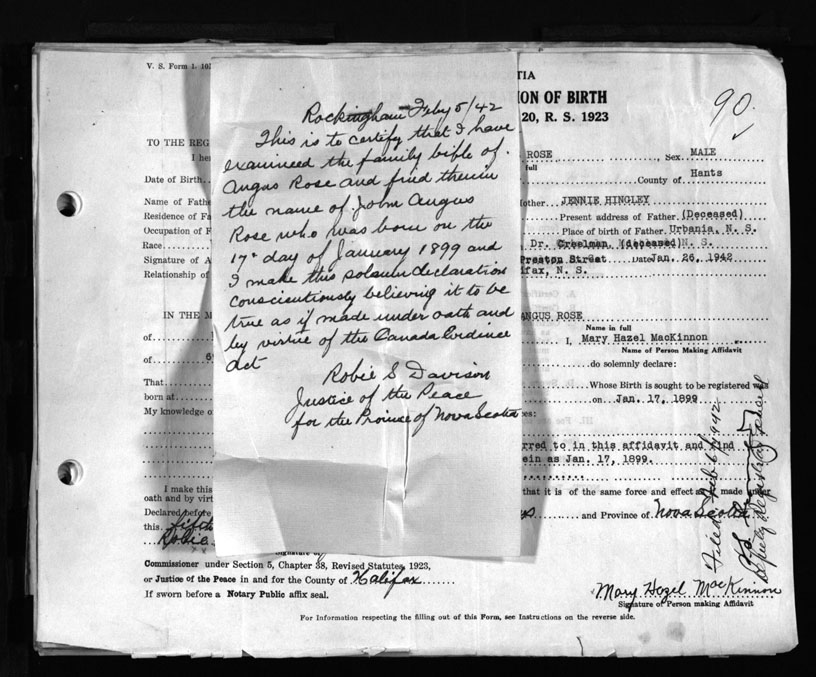 V. S. Form 1. 10
TIA
ION OF BIRTH
20, R. S. 1923
90
TO THE REG
I her
ROSE
Sex MALE
full
Date of Birth
County of Hants
Name of Fath
other JENNIE HINGLEY
Residence of Fa
Present address of Father (Deceased)
Occupation of F
Place of birth of Father. Urbania, N. S.
Race
Dr. Creelman, (deceased) N. S.
Signature of A
Preston Street Date Jan. 26, 1942
Relationship of
ifax, N. S.
Rockingham Feby 5/42
This is to certify that I have
examined the family bible of.
Angus Rose and find therein
the name of John Angus
Rose who was born on the
17th day of January 1899 and
I make this solemn declaration
conscientiously believing it to be
true as if made under oath and
by virtue of the Canada Evidence
Act
Robie S. Davison
Justice of the Peace
for the Province of Nova Scotia
IN THE M
ANGUS ROSE
Name in full
of
I, Mary Hazel MacKinnon
Name of Person Making Affidavit
of 6
do solemnly declare:
That
Whose Birth is sought to be registered was
born at
on Jan. 17, 1899
My knowledge o
es:
rred to in this affidavit and find
ein as Jan. 17, 1899.
I make this
that it is of the same force and effect as if made under
oath and by virt
Declared before
and Province of Nova Scotia
this fifth
Robie
Signature of
Commissioner under Section 5, Chapter 38, Revised Statutes, 1923,
or Justice of the Peace in and for the County of Halifax
If sworn before a Notary Public affix seal.
Mary Hazel MacKinnon
Signature of Person making Affidavit
For Information respecting the filling out of this Form, see Instructions on the reverse side.
Filed Feb 6 1942
Deputy Registrar General